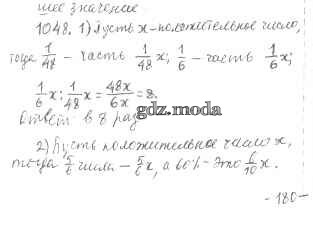 шее значение
1048. 1) Пусть x - положительное число,
тогда 1/48 - часть 1/48 x; 1/6 - часть 1/6 x;
1/6 x : 1/48 x = 48x/6x = 8.
gdz.moda
Ответ: в 8 раз
2) Пусть положительное число x,
тогда 5/6 числа - 5/6 x, а 60% - это 6/10 x.
- 180 -